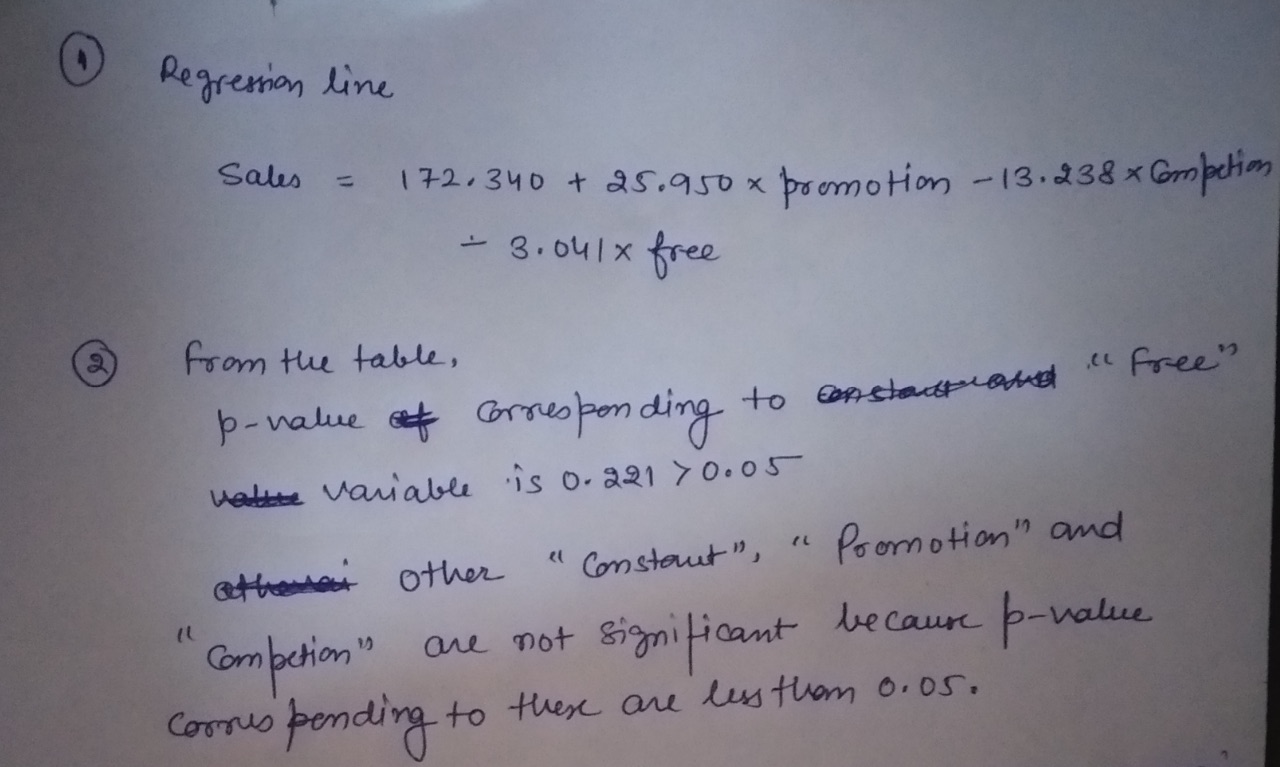 1 Regression line
Sales = 172.340 + 25.950 x promotion - 13.238 x Compction
- 3.041 x free
2 from the table,
p-value corresponding to "free"
variable is 0.221 > 0.05
other "Constant", "Promotion" and
"Compction" are not significant because p-value
corresponding to these are less than 0.05.